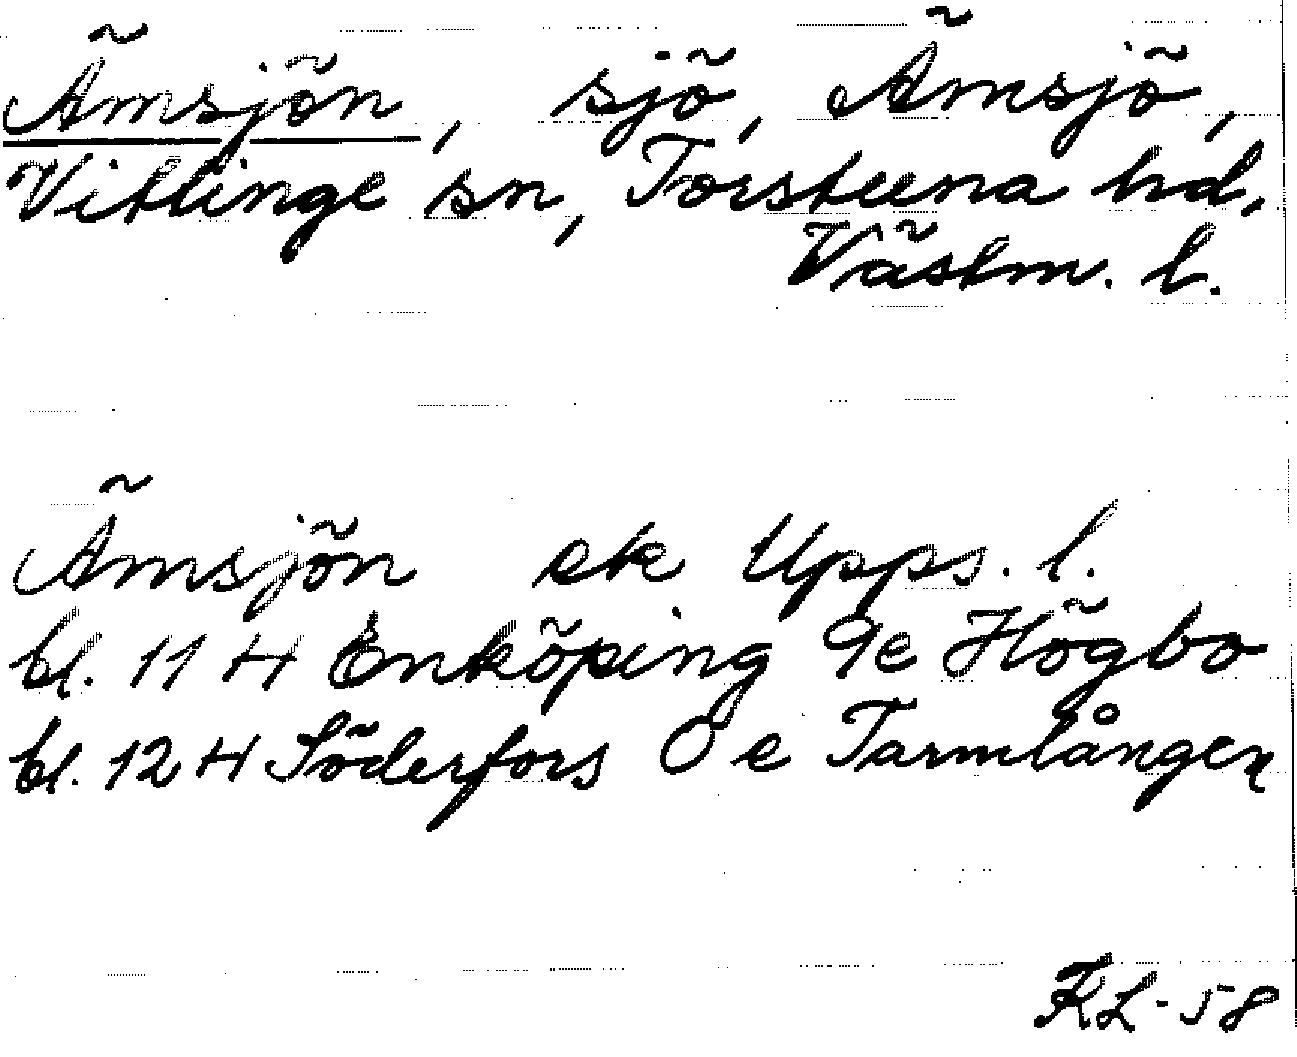 Ämsjön, sjö, Ämsjö,
Vittinge sn, Torstuna hd,
Västm. l.
Ämsjön ek Upps. l.
bl. 11 H Enköping 9e Högbo
bl. 12 H Söderfors 0e Tarmlången
KL-58